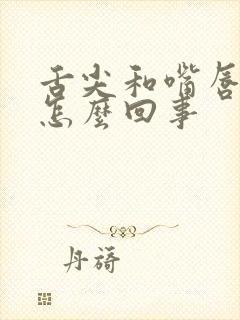 舌尖和嘴唇
怎麼回事
丹旖